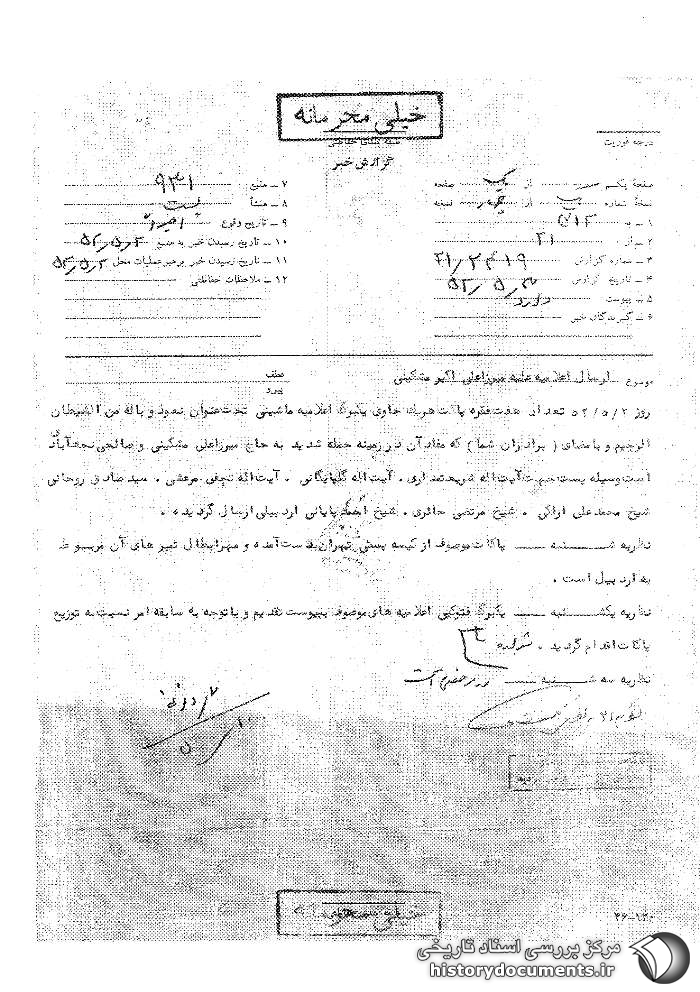 خیلی محرمانه
گزارش خبر
درجه فوریت
صفحه یکم از یک صفحه
نسخه شماره از چهار نسخه
۱ ـ به ۳۱۲
۲ ـ از ۲۱
۳ ـ شماره گزارش ۲۱/۲۴۱۹
۴ ـ تاریخ گزارش ۵۲/۵/۳
۵ ـ پیوست دارد
۶ ـ گیرندگان خبر
۷ ـ منبع ۹۴۱
۸ ـ منشأ پست
۹ ـ تاریخ وقوع اخیرا
۱۰ ـ تاریخ رسیدن خبر به منبع ۵۲/۵/۲
۱۱ ـ تاریخ رسیدن خبر برهبر عملیات محل ۵۲/۵/۲
۱۲ ـ ملاحظات حفاظتی
موضوع ارسال اعلامیه علیه میرزاعلی اکبر مشکینی
عطف
پیرو
روز ۵۲/۵/۲ تعداد هفت فقره پاکت هریک حاوی یکبرگ اعلامیه ماشینی تحت عنوان نعوذ و بالله من الشیطان
الرجیم و با متنای ( برادران شما ) که مفاد آن در زمینه حمله شدید به حاج میرزاعلی مشکینی و صالحی نجف آباد
است وسیله پست جهت آیت اله شریعتمداری ، آیت اله گلپایگانی ، آیت اله نجفی مرعشی ، سید صادق روحانی
شیخ محمدعلی اراکی ، شیخ مرتضی حائری ، شیخ احمد پایانی اردبیلی ارسال گردیده ،
نظریه شـــنبه ــــ پاکات موصوف از کیسه پستی تهران بدست آمده و مهرابطال تمبرهای آن مربوط
به اردبیل است .
نظریه یکشــنبه ــــ یکبرگ فتوکپی اعلامیه های موصوف بپیوست تقدیم و با توجه به سابقه امر نسبت به توزیع
پاکات اقدام گردید .
نظریه سه شــنبه ــــ
خیلی محرمانه
۲۶-۱۲۰
مرکز بررسی اسناد تاریخی
historydocuments.ir